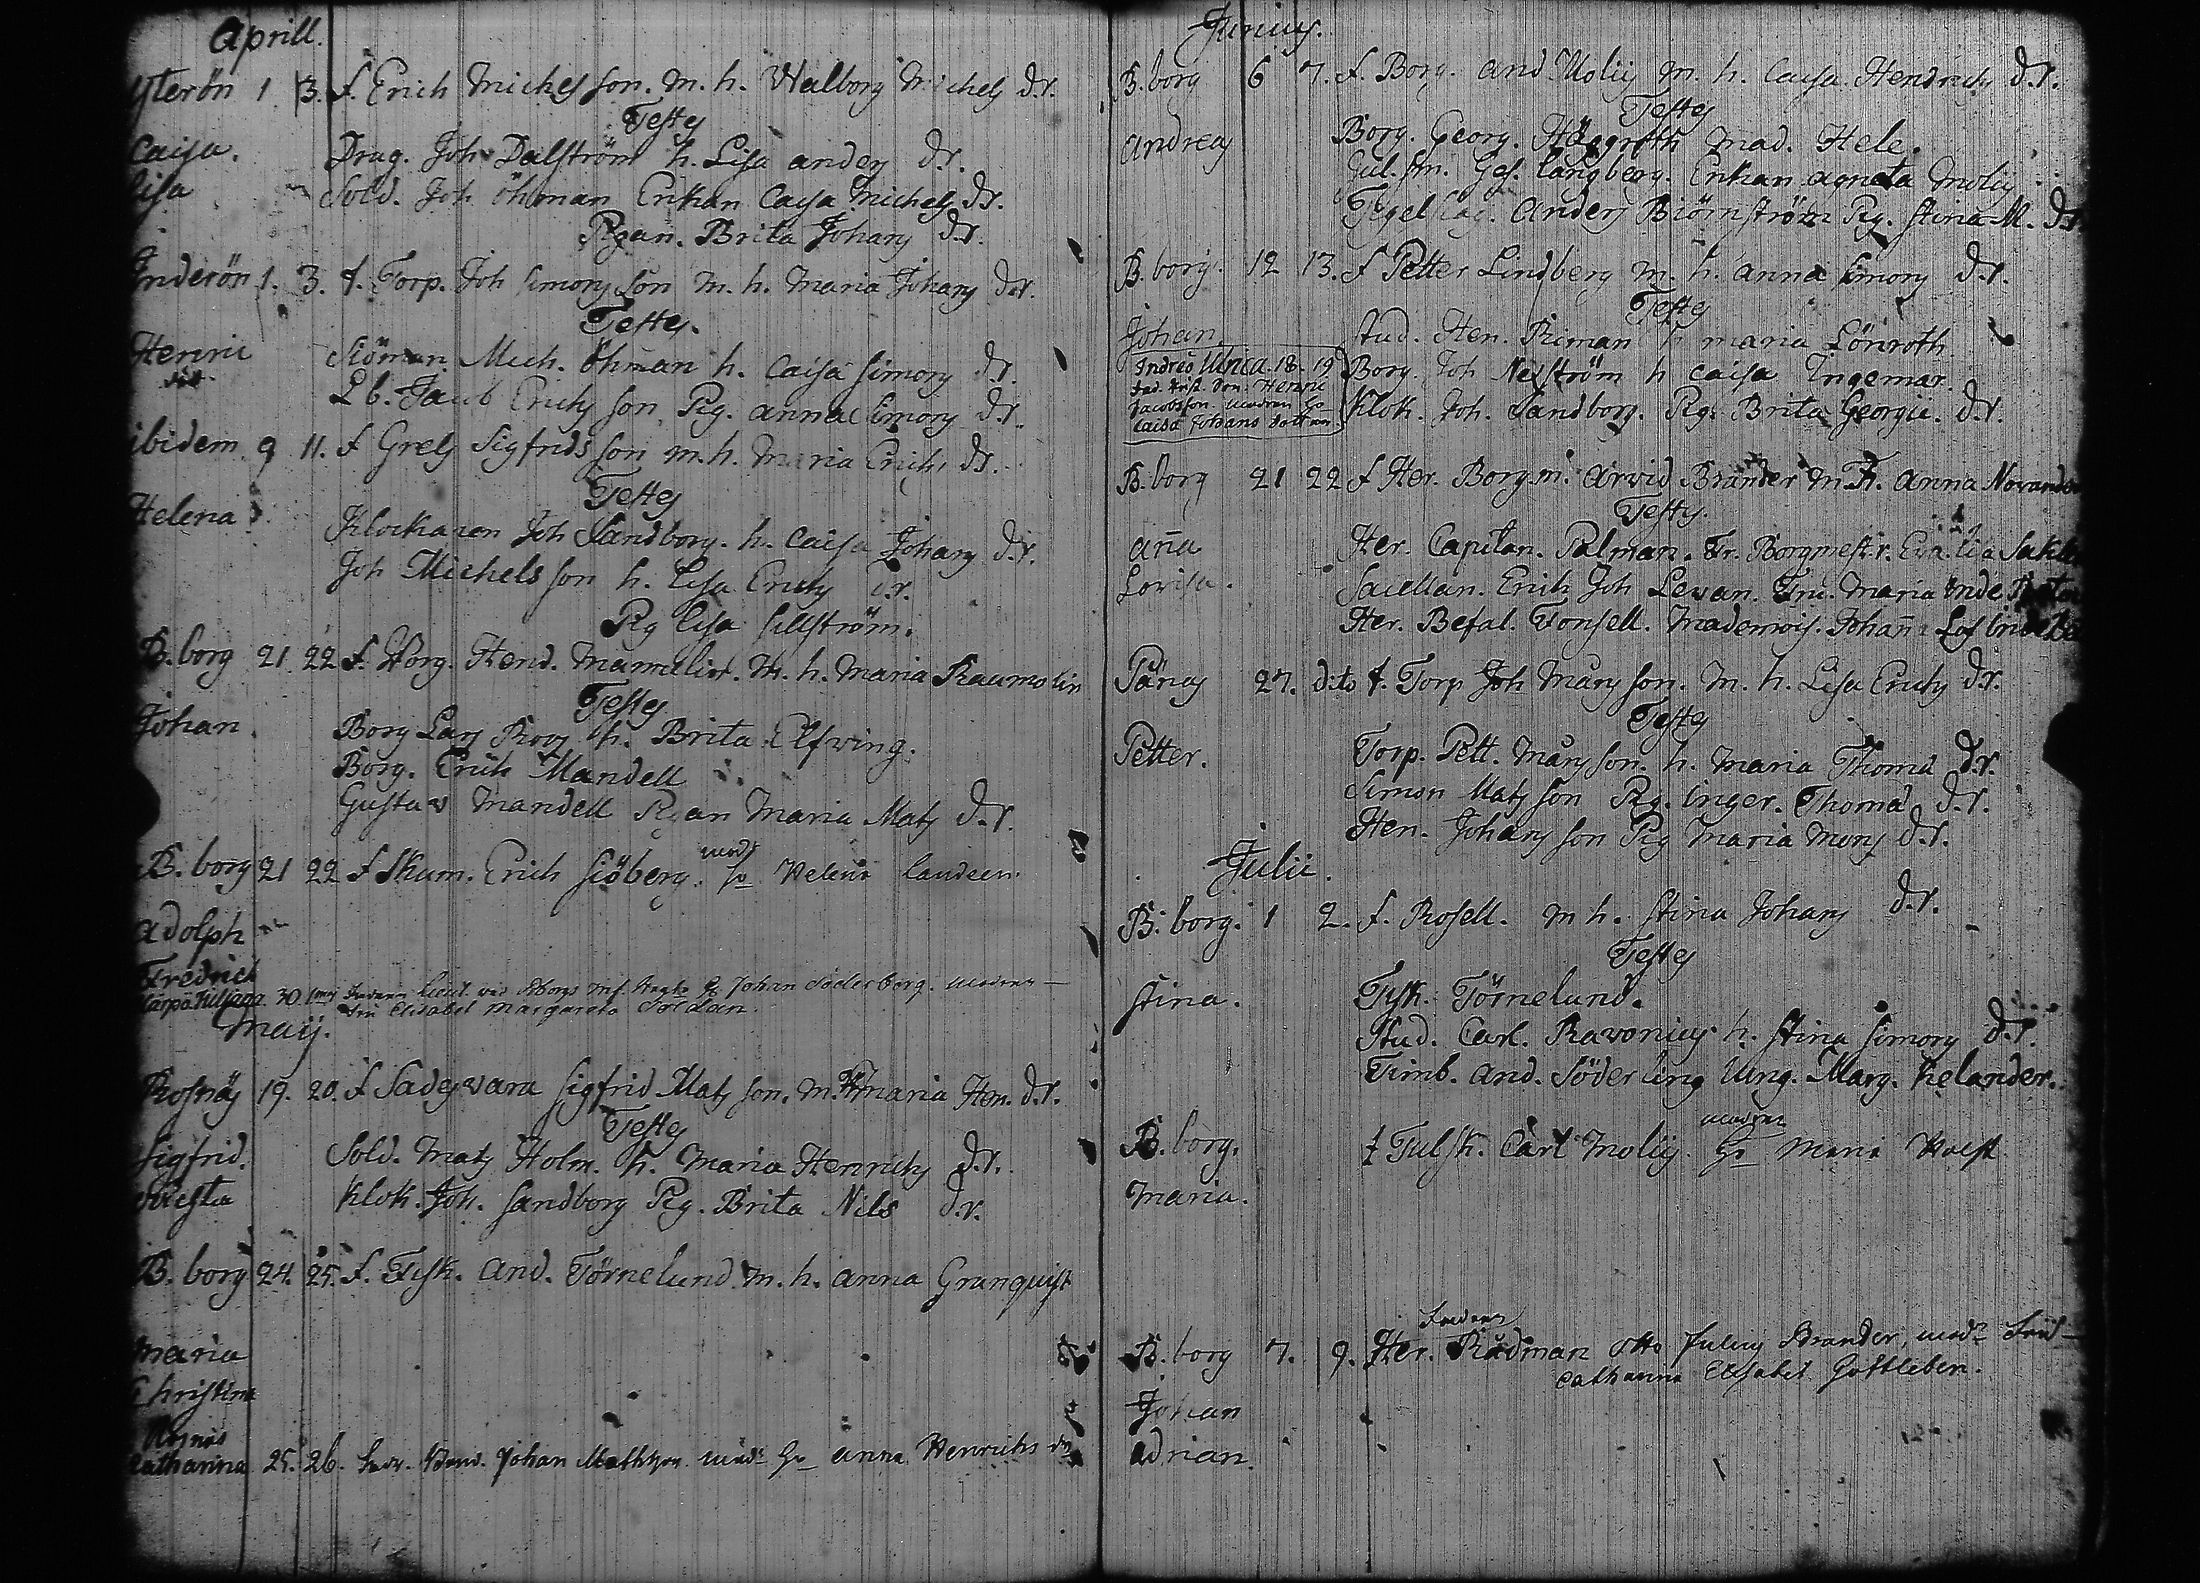 Aprill.
Ytterön 1 3. f. Erich Michels son. m. h. Walborg Michels d.r.
Testes
Caisa. Drag. Joh Dalström h. Lisa anders dr.
Lisa Sold. Joh öhman Enkan Caisa Michels dr.
Pigan. Brita Johans d.r.
Inderön 1. 3. f. Torp. Joh Simons son m. h. Maria Johans d.r.
Testes.
Henric Siöman. Mich. Öhman h. Caisa Simons dr.
Lb. Jacob Erichs son Pig. anna Simons dr.
ibidem 9 11. f Grels Sigfrids son m. h. Maria Erichs dr.
Testes
Helena Klockaren Joh Sandborg. h. Caisa Johans d.r.
Joh Michels son h. Lisa Erichs d.r.
Pig Lisa Sillström.
B. borg 21 22 f. Borg. Hend. Mamelin. m. h. Maria Raumolin
Testes
Johan. Borg Lars Roos h. Brita Elfving.
Borg. Erich Mandell
Gustav Mandell Pigan Maria Mats d.r.
B. borg 21 22 f Skum. Erich Siöberg. mod: Hu Helena Landeen.
Adolph
Fredrich
30 1 maj Fadren Lieut. vid Åborgs Inf. Johan Söderborg. modren
Fru Elisabet Margareta Soldan.
Maij.
Rosnäs 19. 20. f Sadesvara Sigfrid Mats son. m. H Maria Hen. d.r.
Testes
Sigfrid. Sold. Mats Holm. h. Maria Henrichs d.r.
Klok. Joh. Sandborg Pig. Brita Nils d.r.
B. borg 24. 25. f. Fisk. And. Törnelund m. h. Anna Granquist
Maria
Christina
Catharina 25. 26. Fadr. Bond. Johan Mathsson mod: Hu Anna Henrichs dr
Junius.
B. borg 6 7. f. Borg. And Molijs m. h. Caisa Hendrichs d.r.
Testes
Andreas Borg. Georg. Häggroth Mad. Hele.
Gul. sm. Ges. Långberg. Enkan Agneta Molijs
Tegelslag. Anders Biörnström Pig. Stina M. dr
B. borg. 12 13. f Petter Lindberg m. h. Anna Simons d.r.
Testes
Johan. Stud. Hen. Riman h Maria Lönroth
Indrås Ulrica. 18. 19 Borg. Joh Neiström h Caisa Ingemar.
Fad. Henric
Jacobsson. modren Hu
Caisa Johans dotter
Klok. Joh. Sandborg. Pig. Brita Georgii. d.r.
B. borg 21 22 f Her. Borgm. Arvid Brander m. F. Anna Novander
Testes.
Anna Her. Capitan. Palman. Fr. Borgmestr. Eva
Lovisa. Sacellan. Erich Joh Levan. Fru. Maria
Her. Befal. Fonsell. Mademois. Johan
Pänäs 27. dito f. Torp Joh Måns son. m. h. Lisa Erichs d.r.
Testes
Petter. Torp. Pett. Måns son. h. Maria Thoma d.r.
Simon Mats son Pig. Inger. Thoma d.r.
Hen. Johans son Pig Maria Mons d.r.
Julii.
B. borg. 1 2. f. Rosell. m h. Stina Johans d.r.
Testes
Stina. Fisk. Törnelund.
Stud. Carl. Ravonius h. Stina Simons d.r.
Timb. And. Söderling Ung. Marg. Kelander.
B. borg. f Tulsk. Carl Molijs. modren Hu Maria
Maria.
B. borg 7. 9. Fadren Her. Rådman Otto Julius Brander, modr Fru
Catharina Elisabet Gottleben.
Johan
Adrian.